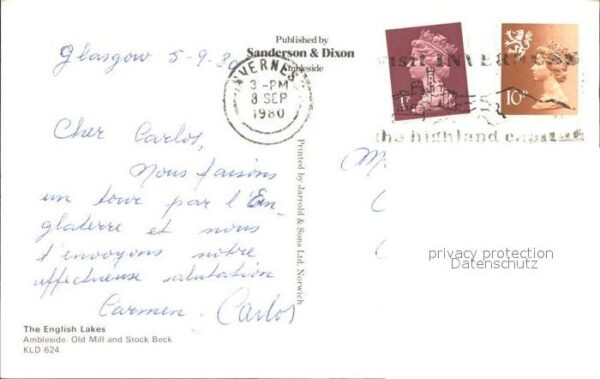 Glasgow 5-9.80
Published by
Sanderson & Dixon
Ambleside
INVERNESS
3-PM
8 SEP
1980
1P
10P
visit INVERNESS
the highland capital
Cher Carlos,
Nous faisons
un tour par l'En-
glaterre et nous
t'envoyons notre
affectueuse salutation
Carmen - Carlos
Printed by Jarrold & Sons Ltd. Norwich
privacy protection
Datenschutz
The English Lakes
Ambleside: Old Mill and Stock Beck
KLD 624